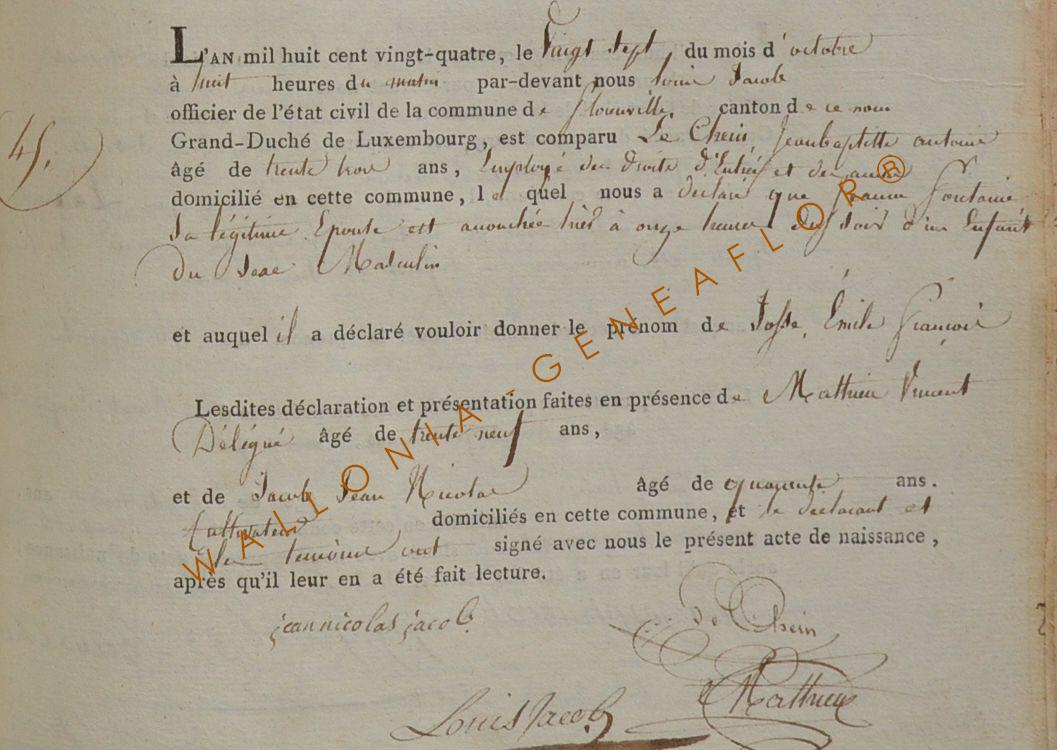 L'AN mil huit cent vingt-quatre, le Vingt Sept du mois d'octobre
à huit heures du matin par-devant nous Louis Jacob
officier de l'état civil de la commune de Florenville, canton de ce nom
Grand-Duché de Luxembourg, est comparu Le Chein, Jeanbaptiste antoine
âgé de trente trois ans, Employé des Droits d'Entrées et des
domicilié en cette commune, lequel nous a déclaré que Jeanne Fontaine,
sa légitime Epouse est accouchée hier à onze heures du soir d'un Enfant
Du Sexe Masculin
et auquel il a déclaré vouloir donner le prénom de Josse, Émile François
45.
Lesdites déclaration et présentation faites en présence de Mathieu Vincent
Délégué âgé de trente neuf ans,
et de Jacob Jean Nicolas âgé de quarante ans.
Cultivateur domiciliés en cette commune, et le déclarant et
les temoins ont signé avec nous le présent acte de naissance,
après qu'il leur en a été fait lecture.
jeannicolas jacob
de Chein
Mathieu
Louis Jacob
WALLONIA-GENEAFLOR®